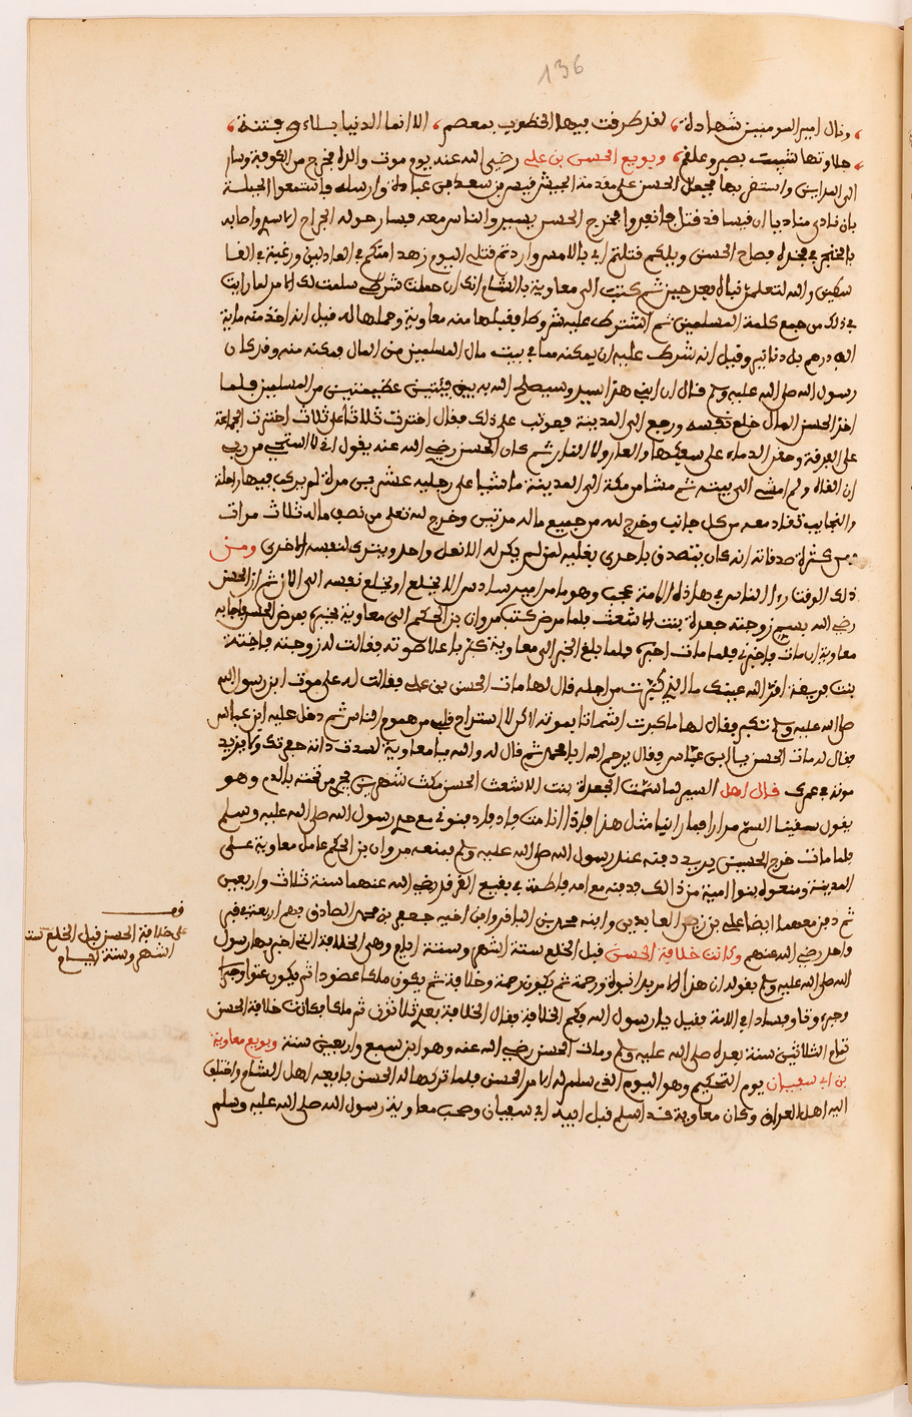 136
ونال امير المومنين شهادة، لقد طرقت فيها الخطوب بمعصم، الا انما الدنيا بلاء وفتنة،
حلاوتها شيبت بصبر وعلقم، وبويع الحسن بن على رضي الله عنه يوم موت والده فخرج من الكوفة وسار
الى المداين واستقر بها فجعل الحسن على مقدمة الجيش قيس بن سعد في عبادة وارسله
بان نادى مناديا ان قيسا قد قتل فانفروا فخرج الحسن يسير والناس معه فسار حوله الجراح الاسدي واصابه
بالخنجر في فخذه فصاح الحسن ويلكم قتلتم ابي بالامس واردتم قتلي اليوم زهدا منكم في العادلين ورغبة في القا
سطين والله لتعلمن نباه بعد حين ثم كتب الى معاوية بالشام انك ان حملت شرطي سلمت لك الامر لما رايت
في ذلك من جمع كلمة المسلمين ثم اشترط عليه شروطا فقبلها منه معاوية وحملها له قيل انه اخذ منه ماية
الف درهم بل دنانير وقيل انه شرط عليه ان يمكنه مما في بيت مال المسلمين من المال فمكنه منه وقد كان
رسول الله صلى الله عليه وسلم قال ان ابني هذا سيد وسيصلح الله به بين فئتين عظيمتين من المسلمين فلما
اخذ الحسن المال خلع نفسه ورجع الى المدينة فعوتب على ذلك فقال اخترت ثلاثا على ثلاث اخترت الجماعة
على الفرقة وحقن الدماء على سفكها والعار ولا النار ثم كان الحسن رضي الله عنه يقول اني لاستحي من ربي
ان القاه ولم امش الى بيته ثم مشا من مكة الى المدينة ماشيا على رجليه عشرين مرة لم يركب فيها راحلة
والنجايب تقاد معه من كل جانب وخرج لله من جميع ماله مرتين وخرج لله تعلى من نصف ماله ثلاث مرات
من كثرة صدقاته انه كان يتصدق باحدى نعليه لمن لم يكن له الا نعل واحد ويترك لنفسه الاخرى ومن
ذلك الوقت راا الناس في هاذه الامة عجب وهو ما من امير سادس الا يخلع او يخلع نفسه الى الان ثم ان الحسن
رضي الله بسم زوجته جعدة بنت الاشعث فلما مرض كتب مروان بن الحكم الى معاوية يخبره بمرض الحسن فاجابه
معاوية ان مات فاخبرني فلما مات اخبره فلما بلغ الخبر الى معاوية كبر باعلا صوته فقالت له زوجته فاختة
بنت قريظة اقر الله عينك ما الذي كبرت من اجله قال لها مات الحسن بن على فقالت له على موت ابن رسول الله
صلى الله عليه وسلم تكبر فقال لها ما كبرت اشماتا بموته لاكن لاستراح قلبي من هموم الناس ثم دخل عليه ابن عباس
فقال له مات الحسن يا ابن عباس فقال يرحم الله ابا محمد ثم قال له والله يا معاوية لا سدت ذاته حفرتك ولا يزيد
موته في عمرك قال اهل السير لما سمت الجعدة بنت الاشعث الحسن مكث شهرين يجي من تحته بالدم وهو
يقول سقينا السم مرارا فما راينا مثل هذا فاذا انا مت فادفنوني مع جدي رسول الله صلى الله عليه وسلم
فلما مات خرج الحسين يريد دفنه عند رسول الله صلى الله عليه وسلم فمنعه مروان بن الحكم عامل معاوية على
المدينة ومنعوه بنوا امية من ذالك فدفنه مع امه فاطمة في بقيع الغرقد رضي الله عنهما سنة ثلاث واربعين
ثم دفن معهما ايضا على بن زين العابدين وابنه محمد بن الباقر وابن اخيه جعفر بن محمد الصادق فهم اربعة في قبر
واحد رضي الله عنهم وكانت خلافة الحسن قبل الخلع ستة اشهر وستة ايام وهى الخلافة التي اخبر بها رسول
الله صلى الله عليه وسلم بقوله ان هذا الامر بدا نبوة ورحمة ثم يكون رحمة وخلافة ثم يكون ملكا عضوضا ثم يكون عتوا وجبرا
وجبرية وفسادا في الامة فقيل يا رسول الله فكم الخلافة فقال الخلافة بعدي ثلاثون ثم ملكا فكانت خلافة الحسن
تمام الثلاثين سنة بعده صلى الله عليه وسلم ومات الحسن رضي الله عنه وهو ابن سبع واربعين سنة وبويع معاوية
بن ابى سفيان يوم التحكيم وهو اليوم الذي سلم له الامر الحسن فلما تركها له الحسن بايعه اهل الشام واختلف
اليه اهل العراق وكان معاوية قد اسلم قبل ابيه ابى سفيان وصحب معاوية رسول الله صلى الله عليه وسلم
قف
على خلافة الحسن قبل الخلع ست
اشهر وستة ايام